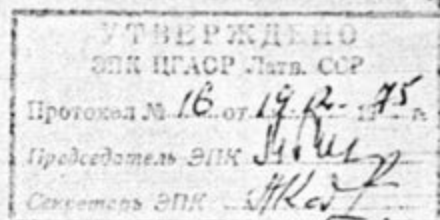 УТВЕРЖДЕНО
ЭПК ЦГАОР Латв. ССР
Протокол № 16 от 19.12. 1975 г.
Председатель ЭПК
Секретарь ЭПК